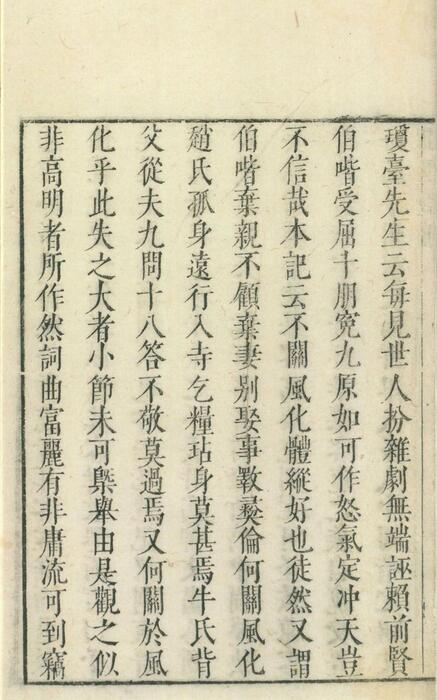 瓊臺先生云每見世人扮雜劇無端誣賴前賢
伯喈受屈十朋寃九原如可作怒氣定冲天豈
不信哉本記云不關風化體縱好也徒然又謂
伯喈棄親不顧棄妻别娶事斁彜倫何關風化
趙氏孤身遠行入寺乞糧玷身莫甚焉牛氏背
父從夫九問十八答不敬莫過焉又何關於風
化乎此失之大者小節未可槩舉由是觀之似
非高明者所作然詞曲富麗有非庸流可到竊